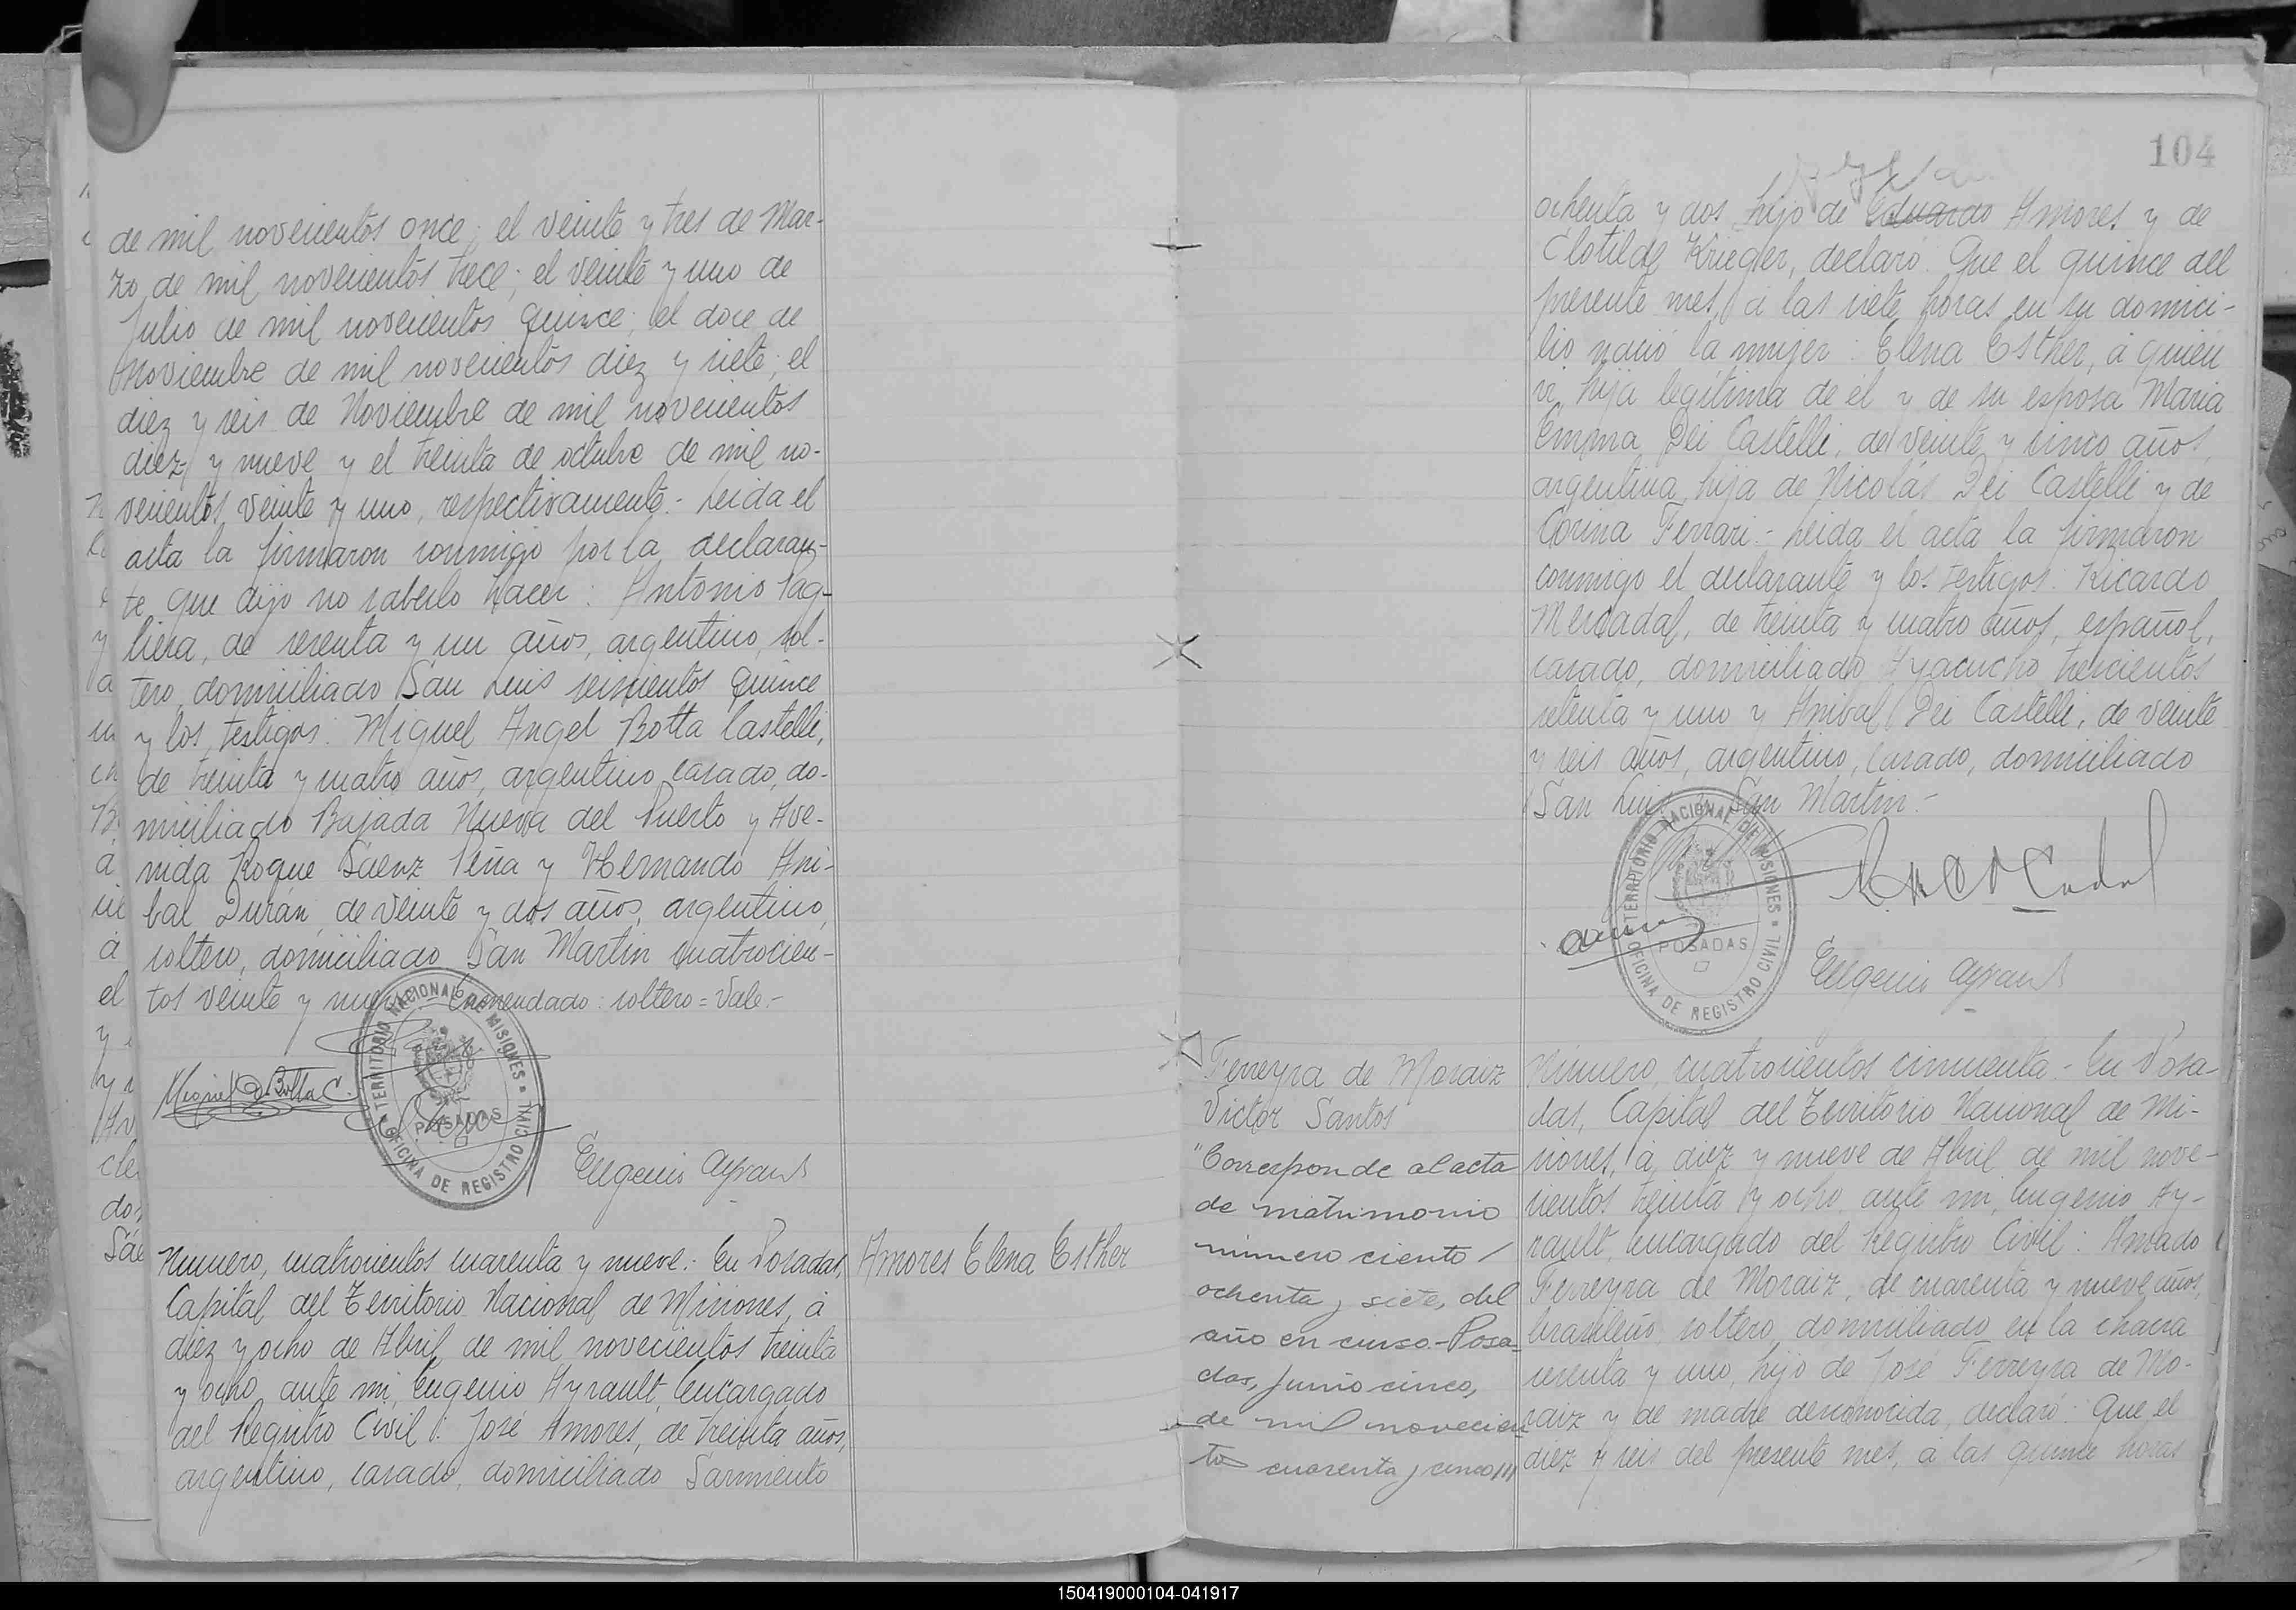 de mil novecientos once; el veinte y tres de Mar-
zo de mil novecientos trece; el veinte y uno de
Julio de mil novecientos quince; el doce de
Noviembre de mil novecientos diez y siete; el
diez y seis de Noviembre de mil novecientos
diez y nueve y el treinta de octubre de mil no-
vecientos veinte y uno, respectivamente.- Leida el
acta la firmaron conmigo por la declaran-
te, que dijo no saberlo hacer: Antonio Pag-
liera, de sesenta y un años, argentino, sol-
tero, domiciliado San Luis seiscientos quince
y los testigos: Miguel Angel Botta Castelli,
de treinta y cuatro años, argentino, casado, do-
miciliado Bajada Nueva del Puerto y Ave-
nida Roque Saenz Peña y Hernando Ani-
bal Durán, de veinte y dos años, argentino,
soltero, domiciliado San Martin cuatrocien-
tos veinte y nueve. Enmendado: soltero = Vale.-
Miguel A. Botta C.
TERRITORIO NACIONAL DE MISIONES
POSADAS
OFICINA DE REGISTRO CIVIL
Eugenio Ayrault
Amores Elena Esther
Número, cuatrocientos cuarenta y nueve.- En Posadas,
Capital del Territorio Nacional de Misiones, á
diez y ocho de Abril de mil novecientos treinta
y ocho, ante mi, Eugenio Ayrault, Encargado
del Registro Civil: José Amores, de treinta años,
argentino, casado, domiciliado Sarmiento
104
ochenta y dos, hijo de Eduardo Amores y de
Clotilde Krieger, declaró: Que el quince del
presente mes, á las siete horas en su domici-
lio nació la mujer: Elena Esther, á quien
vi, hija legítima de él y de su esposa Maria
Emma Dei Castelli, de veinte y cinco años,
argentina, hija de Nicolás Dei Castelli y de
Corina Ferrari.- Leida el acta la firmaron
conmigo el declarante y los testigos: Ricardo
Mercadal, de treinta y cuatro años, español,
casado, domiciliado Ayacucho trescientos
setenta y uno y Anibal Dei Castelli, de veinte
y seis años, argentino, casado, domiciliado
San Luis y San Martin.-
TERRITORIO NACIONAL DE MISIONES
POSADAS
OFICINA DE REGISTRO CIVIL
Eugenio Ayrault
Ferreyra de Moraiz
Victor Santos
"Corresponde al acta
de matrimonio
número ciento
ochenta y siete, del
año en curso.- Posa-
das, Junio cinco,
de mil novecien
tos cuarenta y cinco
Número, cuatrocientos cincuenta.- En Posa-
das, Capital del Territorio Nacional de Mi-
siones, á diez y nueve de Abril de mil nove-
cientos treinta y ocho, ante mi, Eugenio Ay-
rault, Encargado del Registro Civil: Amado
Ferreyra de Moraiz, de cuarenta y nueve años,
brasileño, soltero, domiciliado en la chacra
sesenta y uno, hijo de José Ferreyra de Mo-
raiz y de madre desconocida, declaró: Que el
diez y seis del presente mes, á las quince horas
150419000104-041917